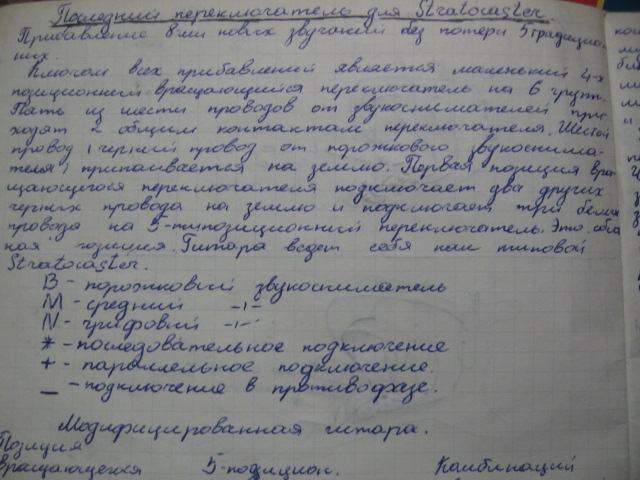 Последний переключатель для Stratocaster
Прибавление 8 ми новых звучаний без потери 5 традицион-
ных.
Ключом всех прибавлений является маленький 4-х
позиционный вращающийся переключатель на 6 групп.
Пять из шести проводов от звукоснимателей при-
ходят к общим контактам переключателя. Шестой
провод (черный провод от порожкового звукоснима-
теля) припаивается на землю. Первая позиция вра-
щающегося переключателя подключает два других
черных провода на землю и подключает три белых
провода на 5-типозиционный переключатель. Это
ная позиция. Гитара ведет себя как типовой
Stratocaster.
B - порожковый звукосниматель
M - средний -//-
N - грифовый -//-
* - последовательное подключение
+ - параллельное подключение.
_ - подключение в противофазе.
Модифицированная гитара.
Позиция
вращающегося 5-позицион. Комбинаций